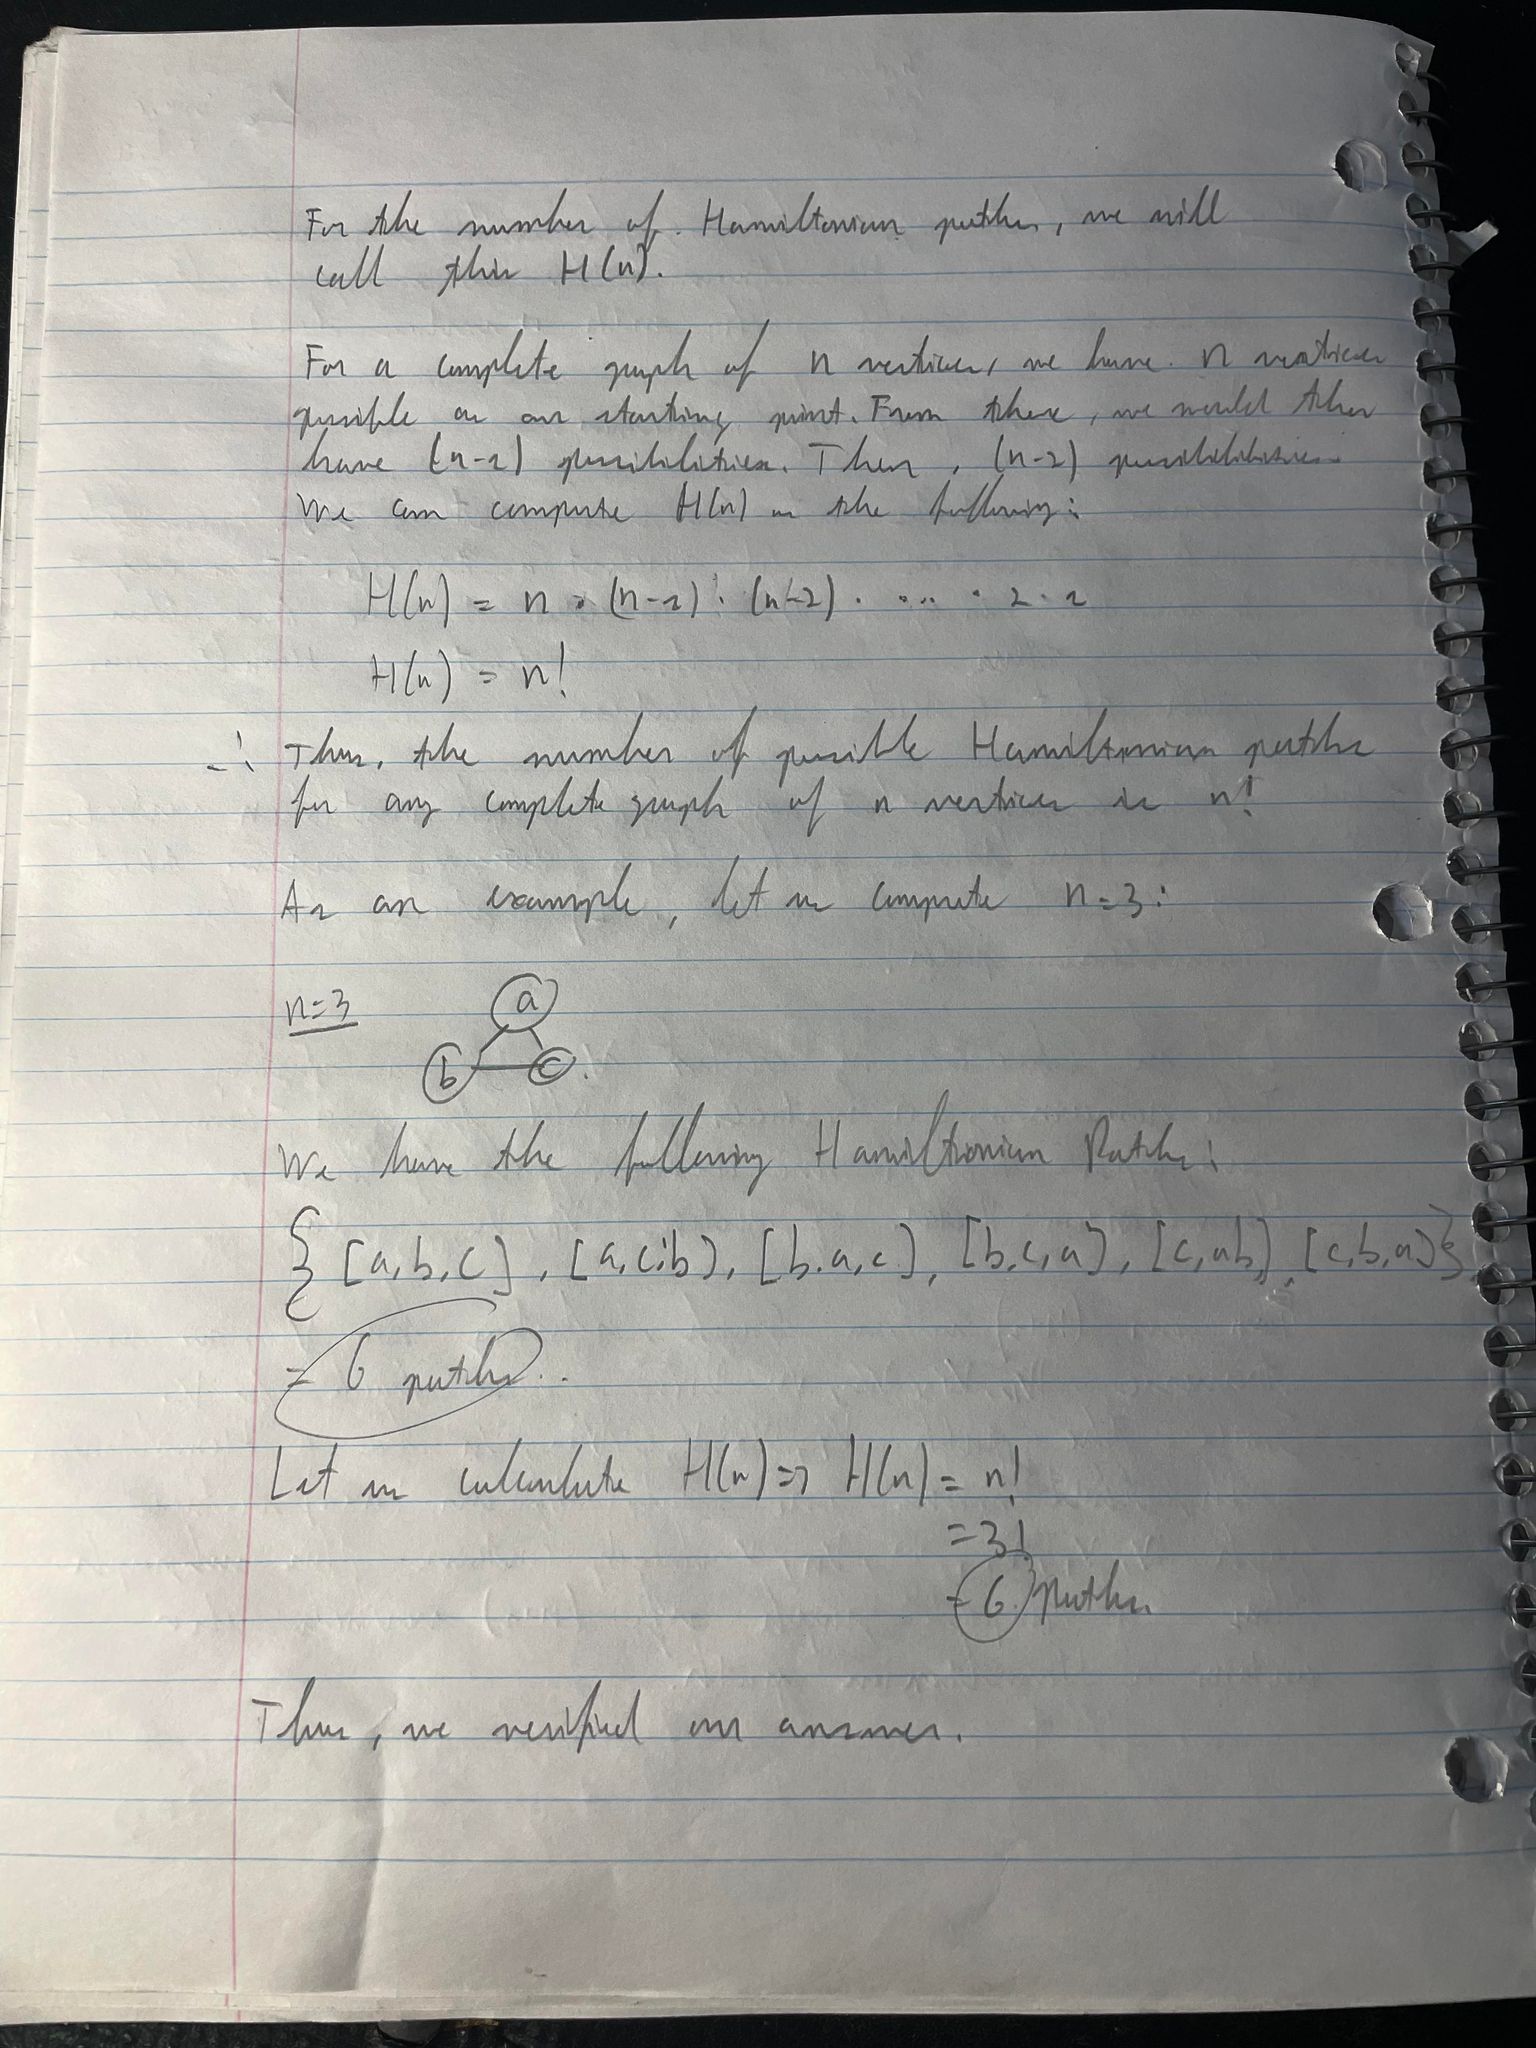 For the number of Hamiltonian paths, we will
call this H(n).
For a complete graph of n vertices, we have n vertices
possible as our starting point. From there, we would then
have (n-1) possibilities. Then, (n-2) possibilibities.
We can compute H(n) as the following:
H(n) = n · (n-1) · (n-2) · ... · 2 · 1
H(n) = n!
∴ Thus, the number of possible Hamiltonian paths
for any complete graph of n vertices is n!
As an example, let us compute n=3:
n=3
a
b c
We have the following Hamiltionian Paths:
{ [a,b,c], [a,c,b], [b,a,c], [b,c,a], [c,a,b], [c,b,a] }
= 6 paths.
Let us calculate H(n) => H(n) = n!
= 3!
= 6 paths
Thus, we verified our answer.